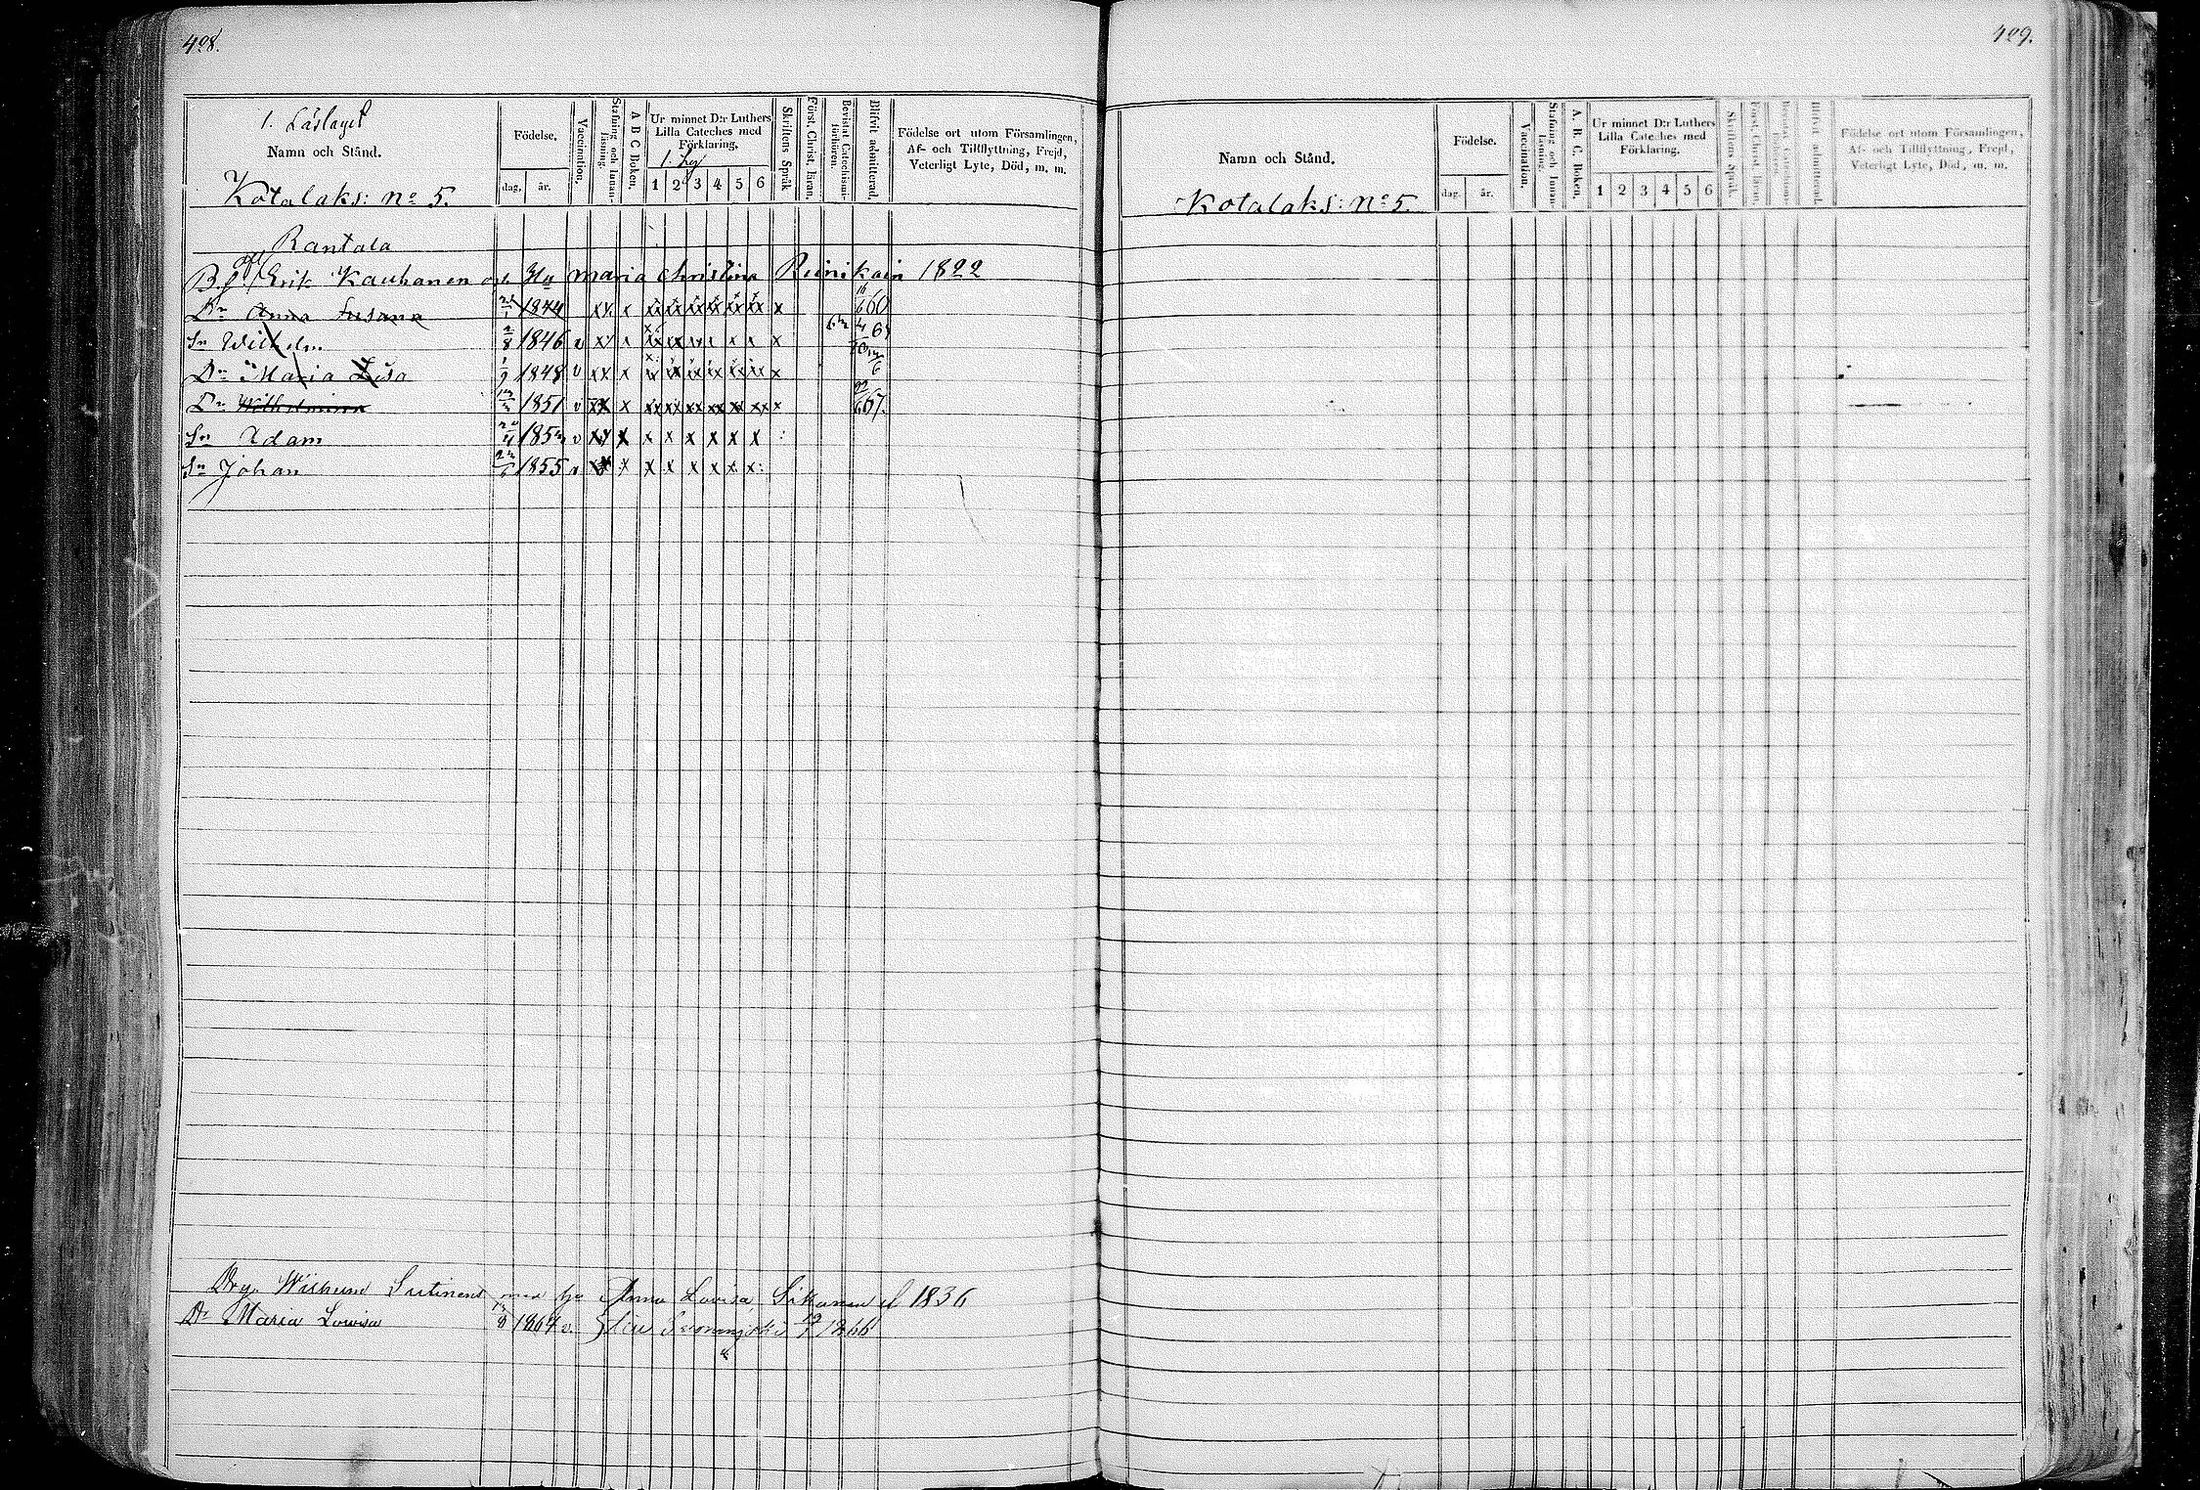 408.
1. Läslaget
Namn och Stånd.
Kotalaks: No 5.
Födelse.
dag. år.
Vaccination.
Stafning och Innan-läsning.
A B C Boken.
Ur minnet D:r Luthers
Lilla Cateches med
Förklaring.
1 2 3 4 5 6
Skriftens Språk
Först. Christ. läran.
Bevistat Catechismi-förhören.
Blifvit admitterad.
Födelse ort utom Församlingen,
Af- och Tillflyttning, Frejd,
Veterligt Lyte, Död, m. m.
Rantala
Erik Kauhanen och Hu Maria Christina Reinikain 1822
Dr Anna Susana 1844 xx x xx xx xx xx xx xx x 60
Sn Wilhelm 2/8 1846 v xx x
Dr Maria Lisa 1/9 1848 v xx x
Dr Wilhelmina 1851 v xx x xx xx xx xx xx xx x 67.
Sn Adam 1853 v xx x x x x x x x
Sn Johan 1855 v xx x x x x x x x
Wilhelm Sutinens med hu Anna Lovisa Sikanen 1836
Dr Maria Lovisa 1864 v. 1866
409.
Namn och Stånd.
Kotalaks: No 5.
Födelse.
dag. år.
Vaccination.
Stafning och Innan-läsning.
A. B. C. Boken.
Ur minnet D:r Luthers
Lilla Cateches med
Förklaring.
1 2 3 4 5 6
Skriftens Språk.
Först. Christ. läran.
Bevistat Catechismi-förhören.
Blifvit admitterad.
Födelse ort utom Församlingen,
Af- och Tillflyttning, Frejd,
Veterligt Lyte, Död, m. m.